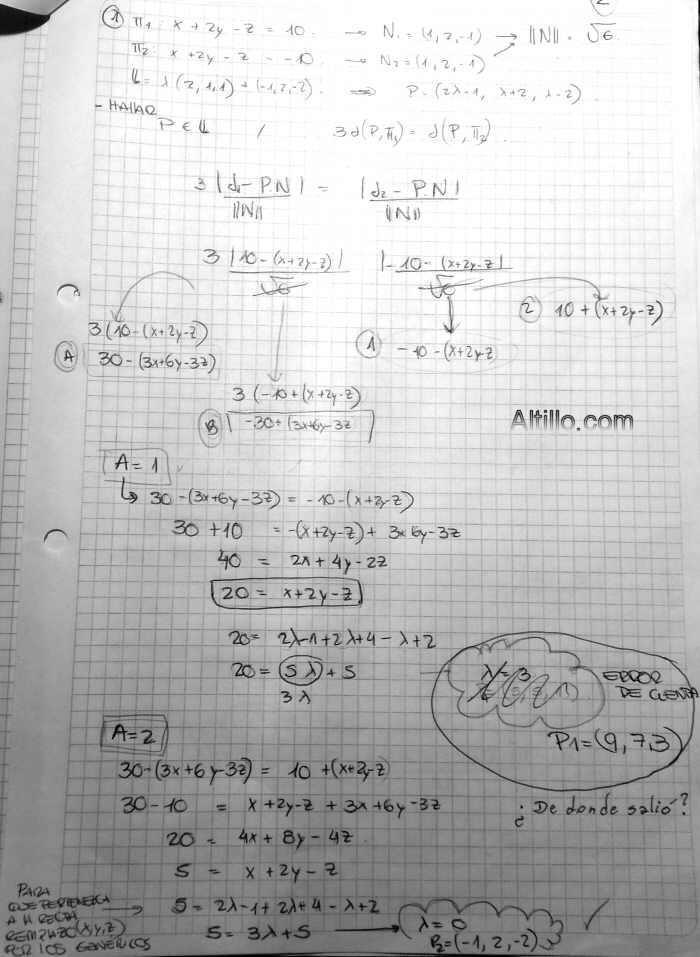 2
① π₁: x + 2y - z = 10. → N₁ = (1, 2, -1) → ||N|| = √6.
π₂: x + 2y - z = -10. → N₂ = (1, 2, -1)
L = λ(2, 1, 1) + (-1, 2, -2). ⇒ P = (2λ-1, λ+2, λ-2).
- HALLAR
P ∈ L / 3d(P, π₁) = d(P, π₂).
3 |d₁ - P.N| / ||N|| = |d₂ - P.N| / ||N||
3 |10 - (x+2y-z)| / √6 |-10 - (x+2y-z)| / √6
② 10 + (x+2y-z)
3(10 - (x+2y-z)
Ⓐ 30 - (3x+6y-3z)
① -10 - (x+2y-z
3(-10 + (x+2y-z)
Ⓑ -30 + (3x+6y-3z
Altillo.com
A = 1
↳ 30 - (3x+6y-3z) = -10 - (x+2y-z)
30 + 10 = -(x+2y-z) + 3x 6y - 3z
40 = 2x + 4y - 2z
20 = x + 2y - z
20 = 2λ - 1 + 2λ + 4 - λ + 2
20 = 5λ + 5
3λ
λ = 3
ERROR
DE CUENTA
P1 = (9, 7, 3)
A = 2
30 - (3x+6y-3z) = 10 + (x+2y-z)
30 - 10 = x + 2y - z + 3x + 6y - 3z
¿De donde salió?
20 = 4x + 8y - 4z
5 = x + 2y - z
PARA
QUE PERTENEZCA
A LA RECTA
REMPLAZO (x,y,z)
POR LOS GENÉRICOS
→ 5 = 2λ - 1 + 2λ + 4 - λ + 2
5 = 3λ + 5 → λ = 0 ✓
P₂ = (-1, 2, -2)